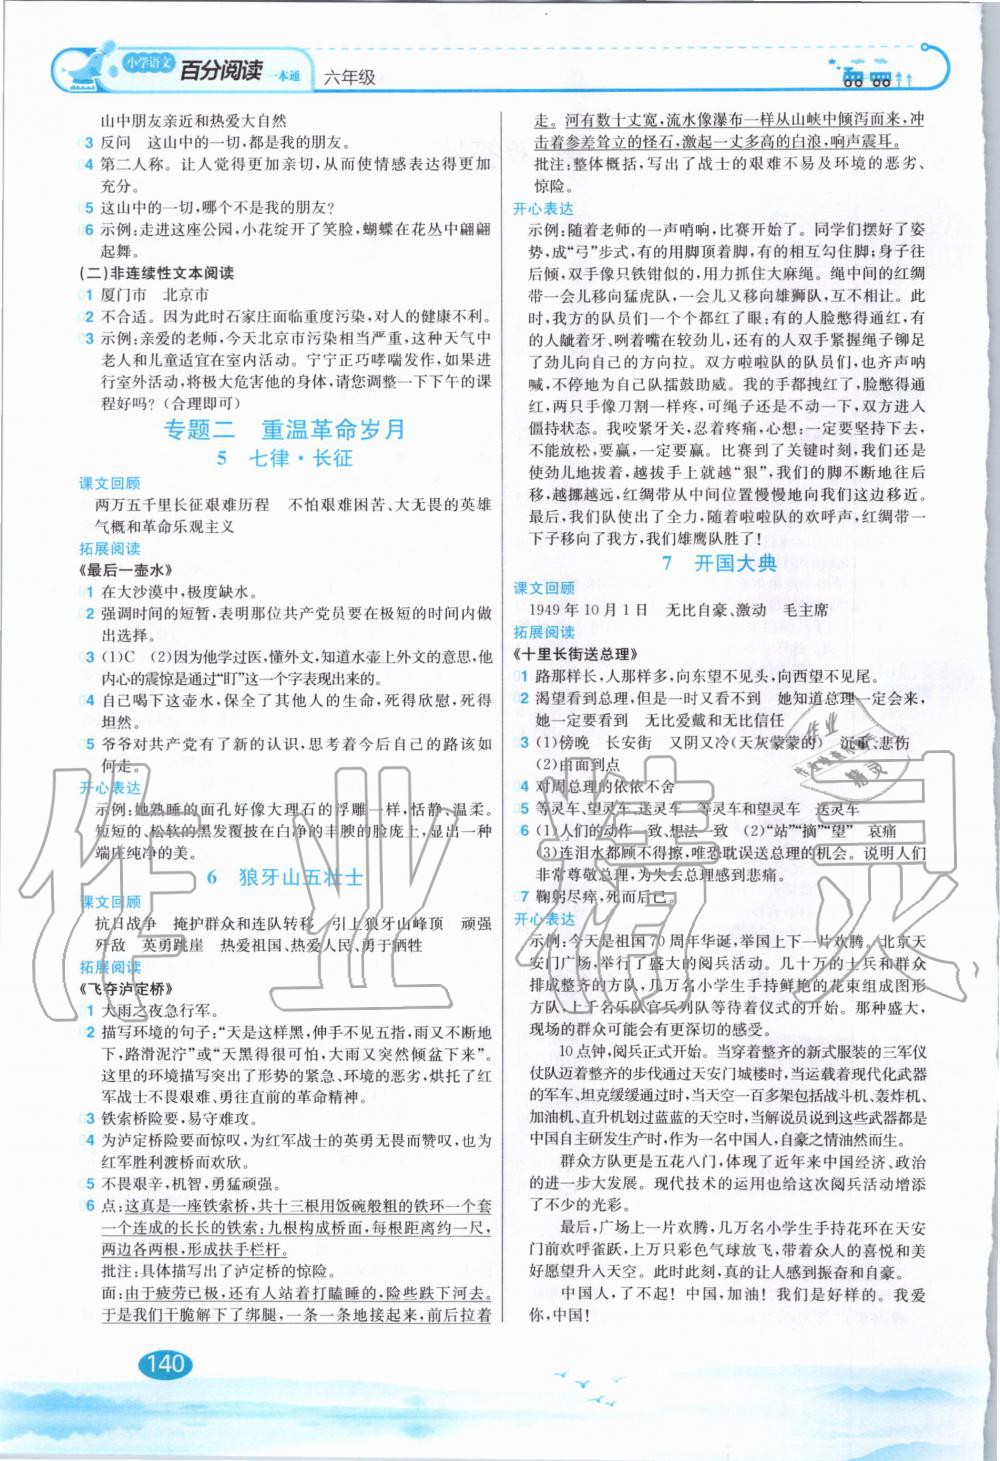 小学语文 百分阅读 一本通 六年级
山中朋友亲近和热爱大自然
03 反问 这山中的一切,都是我的朋友。
04 第二人称。让人觉得更加亲切,从而使情感表达得更加
充分。
05 这山中的一切,哪个不是我的朋友?
06 示例:走进这座公园,小花绽开了笑脸,蝴蝶在花丛中翩翩
起舞。
(二)非连续性文本阅读
01 厦门市 北京市
02 不合适。因为此时石家庄面临重度污染,对人的健康不利。
03 示例:亲爱的老师,今天北京市污染相当严重,这种天气中
老人和儿童适宜在室内活动。宁宁正巧哮喘发作,如果进
行室外活动,将极大危害他的身体,请您调整一下下午的课
程好吗?(合理即可)
专题二 重温革命岁月
5 七律·长征
课文回顾
两万五千里长征艰难历程 不怕艰难困苦、大无畏的英雄
气概和革命乐观主义
拓展阅读
《最后一壶水》
01 在大沙漠中,极度缺水。
02 强调时间的短暂,表明那位共产党员要在极短的时间内做
出选择。
03 (1)C (2)因为他学过医,懂外文,知道水壶上外文的意思,他
内心的震惊是通过“盯”这一个字表现出来的。
04 自己喝下这壶水,保全了其他人的生命,死得欣慰,死得
坦然。
05 爷爷对共产党有了新的认识,思考着今后自己的路该如
何走。
开心表达
示例:她熟睡的面孔好像大理石的浮雕一样,恬静、温柔。
短短的、松软的黑发覆披在白净的丰腴的脸庞上,显出一种
端庄纯净的美。
6 狼牙山五壮士
课文回顾
抗日战争 掩护群众和连队转移 引上狼牙山峰顶 顽强
歼敌 英勇跳崖 热爱祖国、热爱人民、勇于牺牲
拓展阅读
《飞夺泸定桥》
01 大雨之夜急行军。
02 描写环境的句子:“天是这样黑,伸手不见五指,雨又不断地
下,路滑泥泞”或“天黑得很可怕,大雨又突然倾盆下来”。
这里的环境描写突出了形势的紧急、环境的恶劣,烘托了红
军战士不畏艰难、勇往直前的革命精神。
03 铁索桥险要,易守难攻。
04 为泸定桥险要而惊叹,为红军战士的英勇无畏而赞叹,也为
红军胜利渡桥而欢欣。
05 不畏艰辛,机智,勇猛顽强。
06 点:这真是一座铁索桥,共十三根用饭碗般粗的铁环一个套
一个连成的长长的铁索:九根构成桥面,每根距离约一尺,
两边各两根,形成扶手栏杆。
批注:具体描写出了泸定桥的惊险。
面:由于疲劳已极,还有人站着打瞌睡的,险些跌下河去。
于是我们干脆解下了绑腿,一条一条地接起来,前后拉着
走。河有数十丈宽,流水像瀑布一样从山峡中倾泻而来,冲
击着参差耸立的怪石,激起一丈多高的白浪,响声震耳。
批注:整体概括,写出了战士的艰难不易及环境的恶劣、
惊险。
开心表达
示例:随着老师的一声哨响,比赛开始了。同学们摆好了姿
势,成“弓”步式,有的用脚顶着脚,有的相互勾住脚;身子往
后倾,双手像只铁钳似的,用力抓住大麻绳。绳中间的红绸
带一会儿移向猛虎队,一会儿又移向雄狮队,互不相让。此
时,我方的队员们一个个都红了眼:有的人脸憋得通红,有
的人龇着牙、咧着嘴在较劲儿,还有的人双手紧握绳子铆足
了劲儿向自己的方向拉。双方啦啦队的队员们,也齐声呐
喊,不停地为自己队擂鼓助威。我的手都拽红了,脸憋得通
红,两只手像刀割一样疼,可绳子还是不动一动,双方进入
僵持状态。我咬紧牙关,忍着疼痛,心想:一定要坚持下去,
不能放松,要赢,一定要赢。比赛到了关键时刻,我们还是
使劲儿地拔着,越拔手上就越“狠”,我们的脚不断地往后
移,越挪越远,红绸带从中间位置慢慢地向我们这边移近。
最后,我们队使出了全力,随着啦啦队的欢呼声,红绸带一
下子移向了我方,我们雄鹰队胜了!
7 开国大典
课文回顾
1949年10月1日 无比自豪、激动 毛主席
拓展阅读
《十里长街送总理》
01 路那样长,人那样多,向东望不见头,向西望不见尾。
02 渴望看到总理,但是一时又看不到 她知道总理一定会来,
她一定要看到 无比爱戴和无比信任
03 (1)傍晚 长安街 又阴又冷(天灰蒙蒙的) 沉重、悲伤
(2)由面到点
04 对周总理的依依不舍
05 等灵车、望灵车、送灵车 等灵车和望灵车 送灵车
06 (1)人们的动作一致、想法一致 (2)“站”“摘”“望” 哀痛
(3)连泪水都顾不得擦,唯恐耽误送灵车的机会。说明人们
非常尊敬总理,为总理的逝世感到悲痛。
07 鞠躬尽瘁,死而后已。
开心表达
示例:今天是祖国70周年华诞,举国上下一片欢腾。北京天
安门广场,举行了盛大的阅兵活动。几十万的士兵和群众
排成整齐的方阵,几万名小学生手持鲜艳的花束组成图形
方队,上千名乐队官兵列队等待着仪式的开始。我想,
现场的群众可能会有更深切的感受。
10点钟,阅兵正式开始。当穿着整齐的新式服装的三军仪
仗队迈着整齐的步伐通过天安门城楼时,当运载着现代化武器
的军车、坦克缓缓通过时,当天空一百多架包括战斗机、轰炸机、
加油机、直升机划过蓝蓝的天空时,当解说员说到这些武器都是
中国自主研发生产时,作为一名中国人,自豪之情油然而生。
群众方队更是五花八门,体现了近年来中国经济、政治
的进一步大发展。现代技术的运用也给这次阅兵活动增添
了不少的光彩。
最后,广场上一片欢腾,几万名小学生手持花环在天安
门前欢呼雀跃,上万只彩色气球放飞,带着众人的喜悦和美
好愿望升入天空。此时此刻,真的让人感到振奋和自豪。
中国人,了不起!中国,加油!我们是好样的。我爱
你,中国!
140
作业精灵